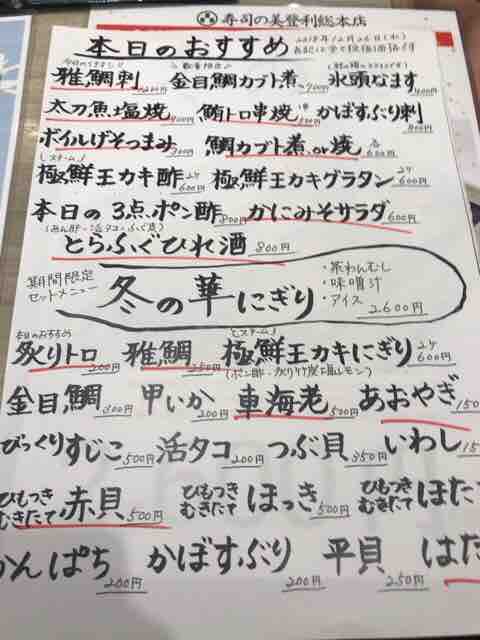 寿司の美登利総本店
本日のおすすめ 2018年12月26日(水)
雅鯛刺 金目鯛カブト煮 氷頭なます 400円
太刀魚塩焼 400円 鮪トロ串焼 かぼすぶり刺 800円
ボイルげそつまみ 300円 鯛カブト煮or焼 各600円
極鮮王カキ酢 2ケ600円 極鮮王カキグラタン 2ケ600円
本日の3点ポン酢 800円 かにみそサラダ 600円
とらふぐひれ酒 800円
期間限定
セットメニュー
冬の華にぎり
・茶わんむし
・味噌汁
・アイス
2.600円
本日のおすすめ
炙りトロ 200円 雅鯛 250円 極鮮王カキにぎり 2ケ600円
金目鯛 300円 甲いか 200円 車海老 500円 あおやぎ 150
びっくりすじこ 500円 活タコ 200円 つぶ貝 350円 いわし 15
ひもつきむきたて 赤貝 500円 ひもつきむきたて ほっき 500円 ひもつきむきたて ほた
かんぱち 200円 かぼすぶり 200円 平貝 250円 はた